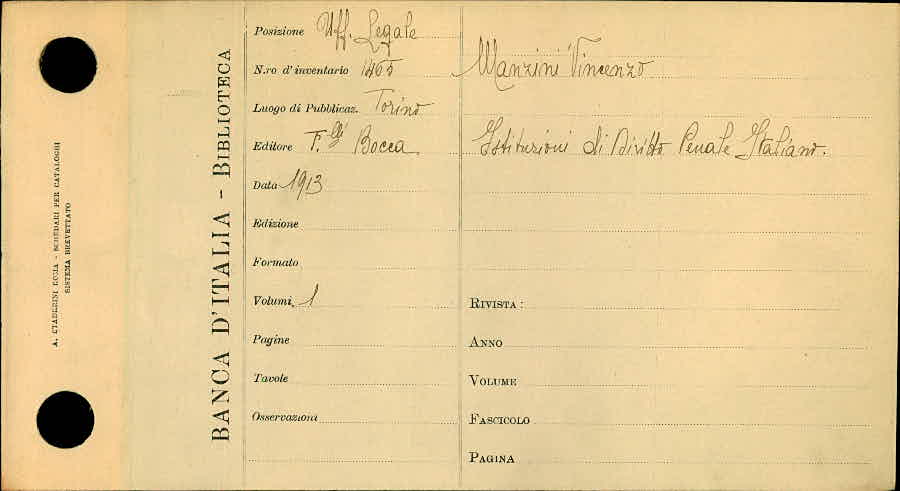 A. STADERINI ROMA - SCHEDARI PER CATALOGHI
SISTEMA BREVETTATO
BANCA D'ITALIA - BIBLIOTECA
Posizione Uff. Legale
N.ro d'inventario 1465
Luogo di Pubblicaz. Torino
Editore F.lli Bocca
Data 1913
Edizione
Formato
Volumi 1
Pagine
Tavole
Osservazioni
Manzini Vincenzo
Istituzioni di Diritto Penale Italiano.
RIVISTA :
ANNO
VOLUME
FASCICOLO
PAGINA